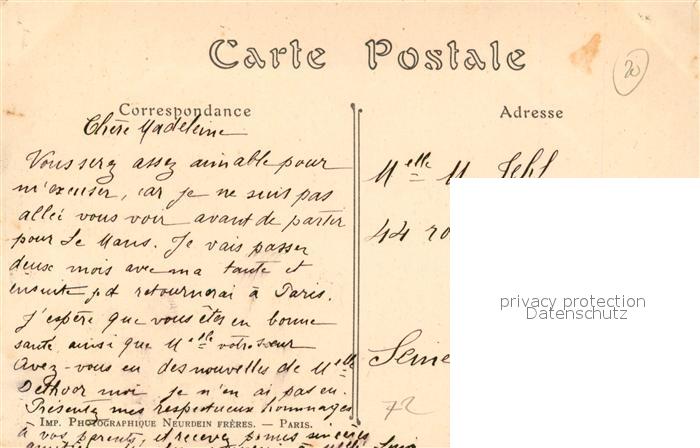 Carte Postale
20
Correspondance
Adresse
Chère Madeleine
Vous serez assez aimable pour
m'excuser, car je ne suis pas
allée vous voir avant de partir
pour Le Mans. Je vais passer
deux mois avec ma tante et
ensuite retournerai à Paris.
J'espère que vous êtes en bonne
santé, ainsi que Melle votre sœur
Avez-vous en des nouvelles de Melle
moi je n'en ai pas eu.
Présentez mes respectueux hommages
Imp. Photographique Neurdein Frères. — Paris.
à vos parents, et recevez sincères
Melle M.
44
Seine
72
privacy protection
Datenschutz